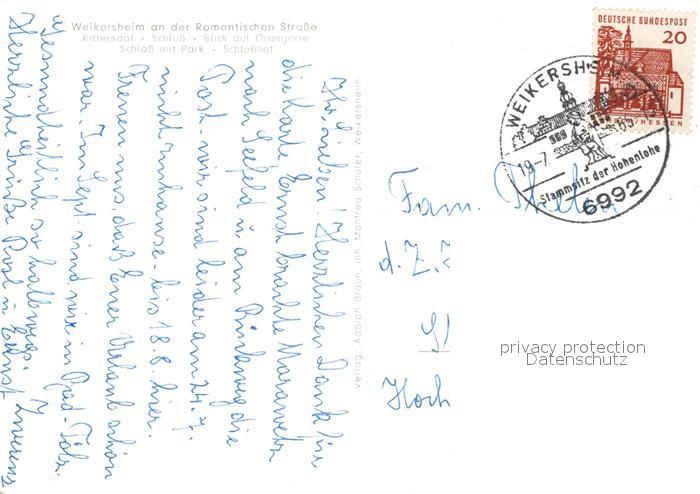 Weikersheim an der Romantischen Straße
Rittersaal - Schloß - Blick auf Orangerie
Schloß mit Park - Schloßhof
DEUTSCHE BUNDESPOST
20
HESSEN
WEIKERSHEIM
19.-7.
Stammsitz der Hohenlohe
6992
Verlag: Adolph Braun, Inh. Manfred Schuler, Weikersheim
Ihr Lieben! Herzlichen Dank für
die Karte, Ernst brachte
nach Seefeld u. am Rückweg die
Post. wir sind leider am 24.7.
nicht zuhause - bis 18.8. hier.
Freuen uns, daß Euer Urlaub schön
war. Im Sept. sind wir in Bad-Tölz.
gesundheitlich so halbwegs.
Herzliche Grüße Rosl u. Ernst
Fam.
d. Z. Z
Hoch
privacy protection
Datenschutz